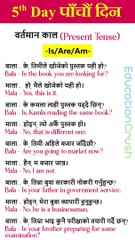 5th Day पाँचौं दिन
वर्तमान काल (Present Tense)
-Is/Are/Am-
बाला : के, तिमीले खोजेको पुस्तक यही हो?
Bala - Is the book you are looking for?
माला : हो, मैले खोजेको यही हो।
Mala - Yes, this is it.
बाला : के कमला त्यही पुस्तक पढ्दै छिन्?
Bala - Is, kamla reading the same book?
माला : होइन, त्यो अर्कै पुस्तक हो।
Mala - No, that is different one.
बाला : के तिमी अहिले बजार जाँदैछौ?
Bala - Are you going to market now?
माला : हैन, म बजार जान्न।
Mala - No, I am not.
बाला : के, तिम्रा बुवा सरकारी नोकरी गर्नुहुन्छ?
Bala - Is your father in government service.
माला : होइन, मेरा बुवा व्यापारी हुनुहुन्छ।
Mala - No, he is a businessman.
बाला : के, तिम्रा भाइ कुनै परीक्षाको तयारी गर्दै छन्?
Bala - Is your brother preparing for some
examination?
EducationCrush